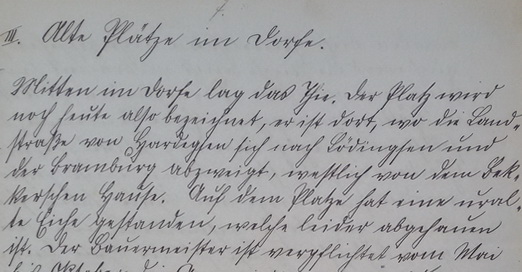 III. Alte Plätze im Dorfe.
Mitten im Dorfe lag das Thie. Der Platz wird
noch heute also bezeichnet, er ist dort, wo die Land-
straße von Hardegsen sich nach Lödingsen und
der Bramburg abzweigt, westlich von dem Bek-
kerschen Hause. Auf dem Platze hat eine ural-
te Eiche gestanden, welche leider abgehauen
ist. Der Bauermeister ist verpflichtet vom Mai
bis Oktober die